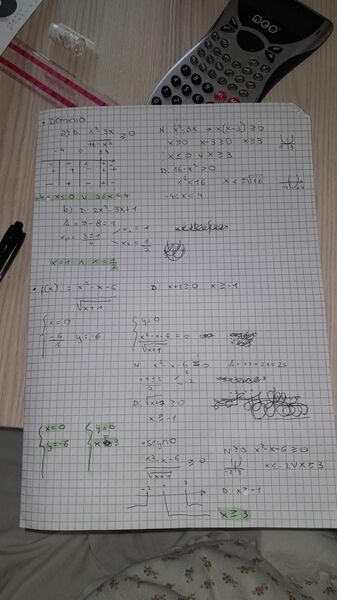 DGO
• DOMINIO
a) D. x²-3x / 16-x² ≥ 0
-4 0 3 4
-4 < x ≤ 0 ∨ 3 ≤ x < 4
N. x²-3x → x(x-3) ≥ 0
x ≥ 0 x-3 ≥ 0 x ≥ 3
x ≤ 0 ∨ x ≥ 3
D. 16-x² > 0
x² < 16 x < √16
-4 < x < 4
b) D 2x²-3x+1
Δ = 9-8 = 1
x₁,₂ = 3±1 / 4 x₁ = 1 x₂ = 1/2
x=1 ∧ x=1/2
• f(x) = x²-x-6 / √x+1 D. x+1 ≥ 0 x ≥ -1
{ x=0
-6/1 y=-6
{ y=0
x²-x-6 / √x+1 = 0
N. x²-x-6 = 0 Δ = 1+24 = 25
1±5 / 2 3 -2
D. √x+1 ≥ 0
x ≥ -1
{ x=0 y=-6
{ y=0 x=3
• segno
x²-x-6 / √x+1 ≥ 0
N ≥ 0 x²-x-6 ≥ 0
x ≤ -2 ∨ x ≥ 3
D. x > -1
-2 -1 3
x ≥ 3